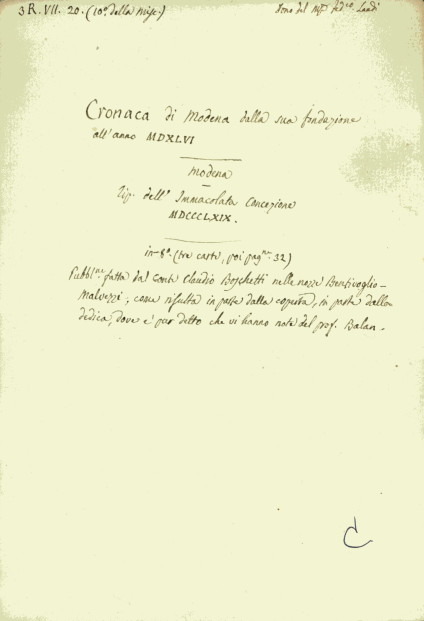 3 R. VII. 20. (10º della Misc.)
Dono del Mse Fedco. Landi
Cronaca di Modena dalla sua fondazione
all'anno MDXLVI
Modena
Tip. dell'Immacolata Concezione
MDCCCLXIX.
in-8º. (tre carte, poi pagne. 32)
Pubblne. fatta dal Conte Claudio Boschetti nelle nozze Bentivoglio-
Malvezzi; come risulta in parte dalla coperta, in parte dalla
dedica, dove è pur detto che vi hanno note del prof. Balan-
C